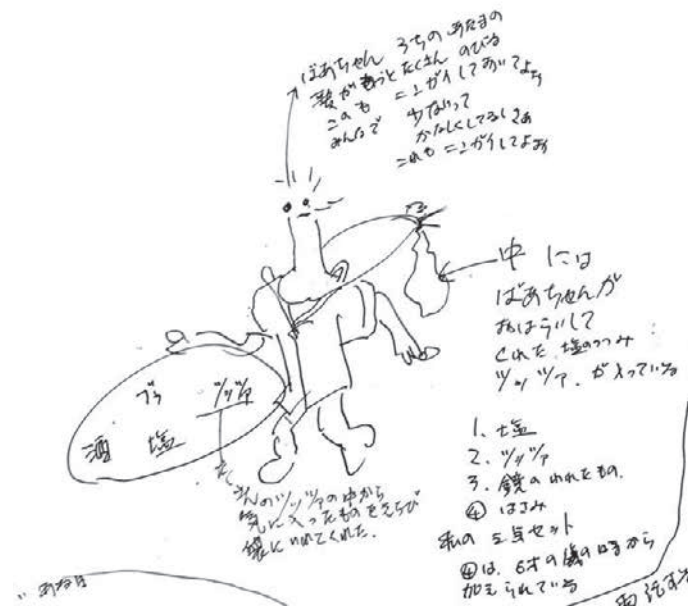 ばあちゃん うちのあたまの
髪がもっとたくさん のびる
このも ニンガイしておいてよお
みんなで 少ないって
かなしくしてるしさあ
これも ニンガイしてよお
中 には
ばあちゃんが
おはらいして
くれた 塩のつつみ
ツッツァ が入っている
ブラ ツッツァ
酒 塩
たくさんのツッツァの中から
気に入ったものをえらび
袋にいれてくれた。
1. 塩
2. ツッツァ
3. 鏡のわれたもの.
④ はさみ
私の 三気セット
④は、6才の儀の時から
加えられている